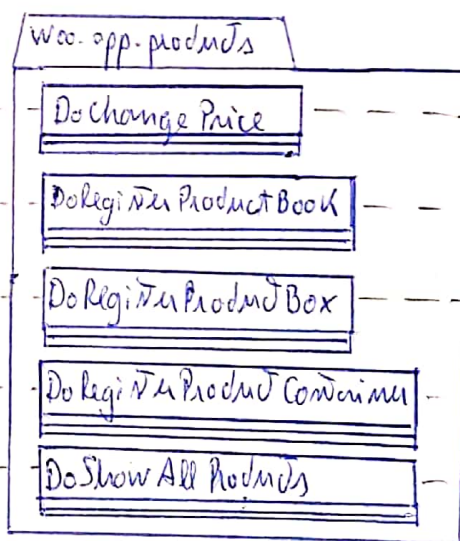 woo.app.products
DoChangePrice
DoRegisterProductBook
DoRegisterProductBox
DoRegisterProductContainer
DoShowAllProducts